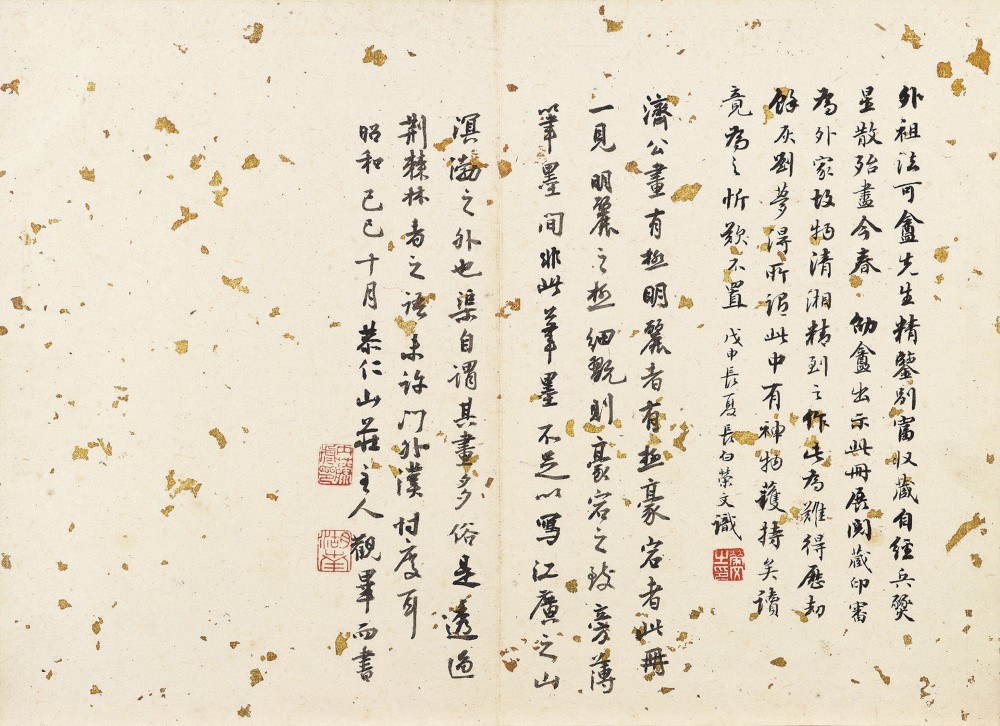 外祖法可盦先生精鑒別富收藏自經兵燹
星散殆盡今春 劬盦出示此冊展閱藏印審
為外家故物清湘精到之作此為難得歷劫
餘灰劉夢得所謂此中有神物護持矣讀
竟為之忻歎不置 戊申長夏長白榮文識
濟公畫有極明麗者有極豪宕者此冊
一見明麗之極細翫則豪宕之致旁薄
筆墨間非此筆墨不足以寫江廣之山
溟渤之外也渠自謂其畫多俗是透過
荆棘林者之語未許門外漢忖度耳
昭和己巳十月恭仁山莊主人觀畢而書